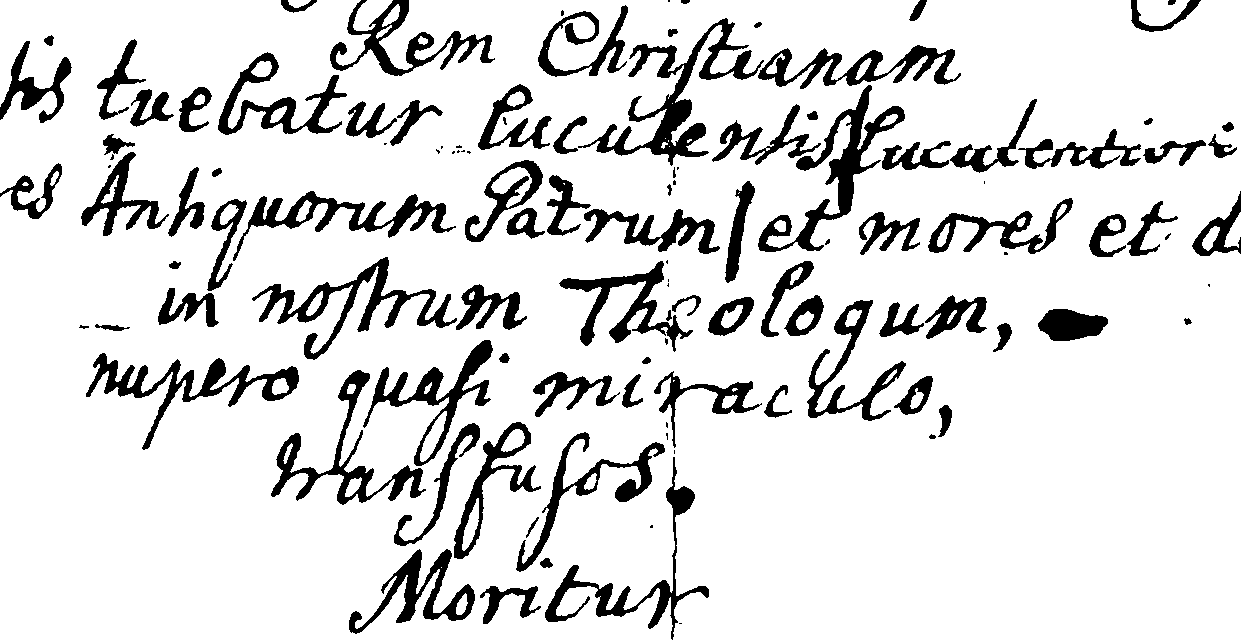 Rem Christianam
tuebatur luculentis, luculentiori
Antiquorum Patrum | et mores et
in nostrum Theologum,
nupero quasi miraculo,
transfusos.
Moritur